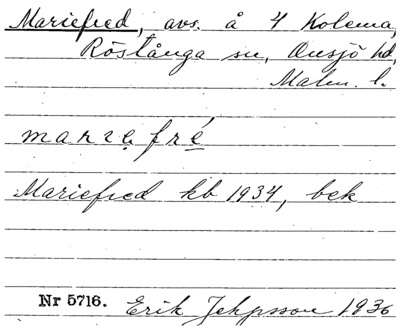 Mariefred, avs. å 4 Kolema,
Röstånga sn, Onsjö hd,
Malm. l.
marẹfré
Mariefred kb 1934, bek
Nr 5716. Erik Jeppsson 1936